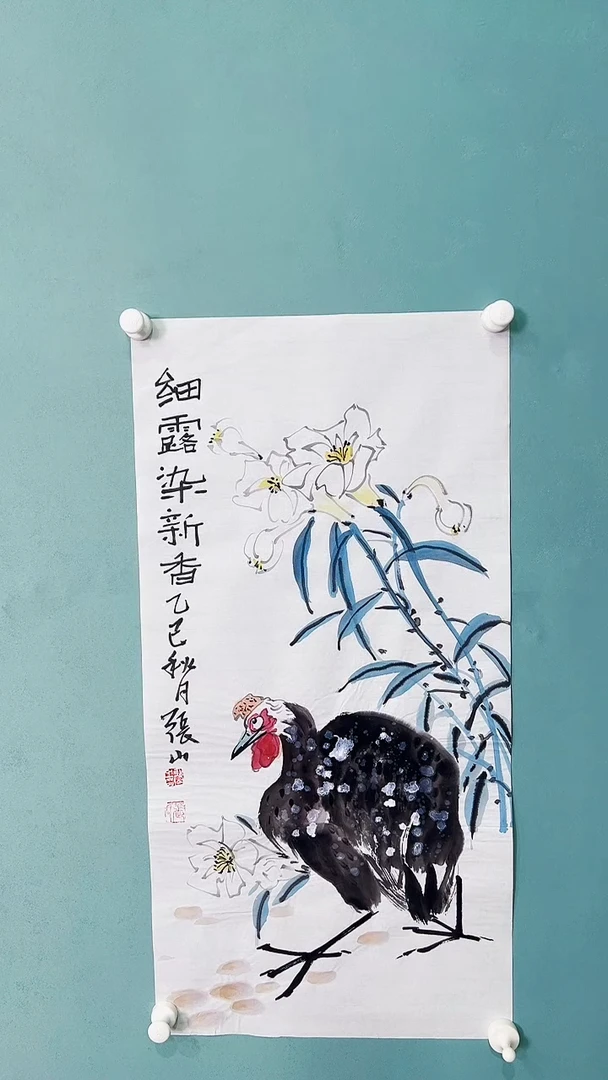 细露染新香乙巳秋月張山